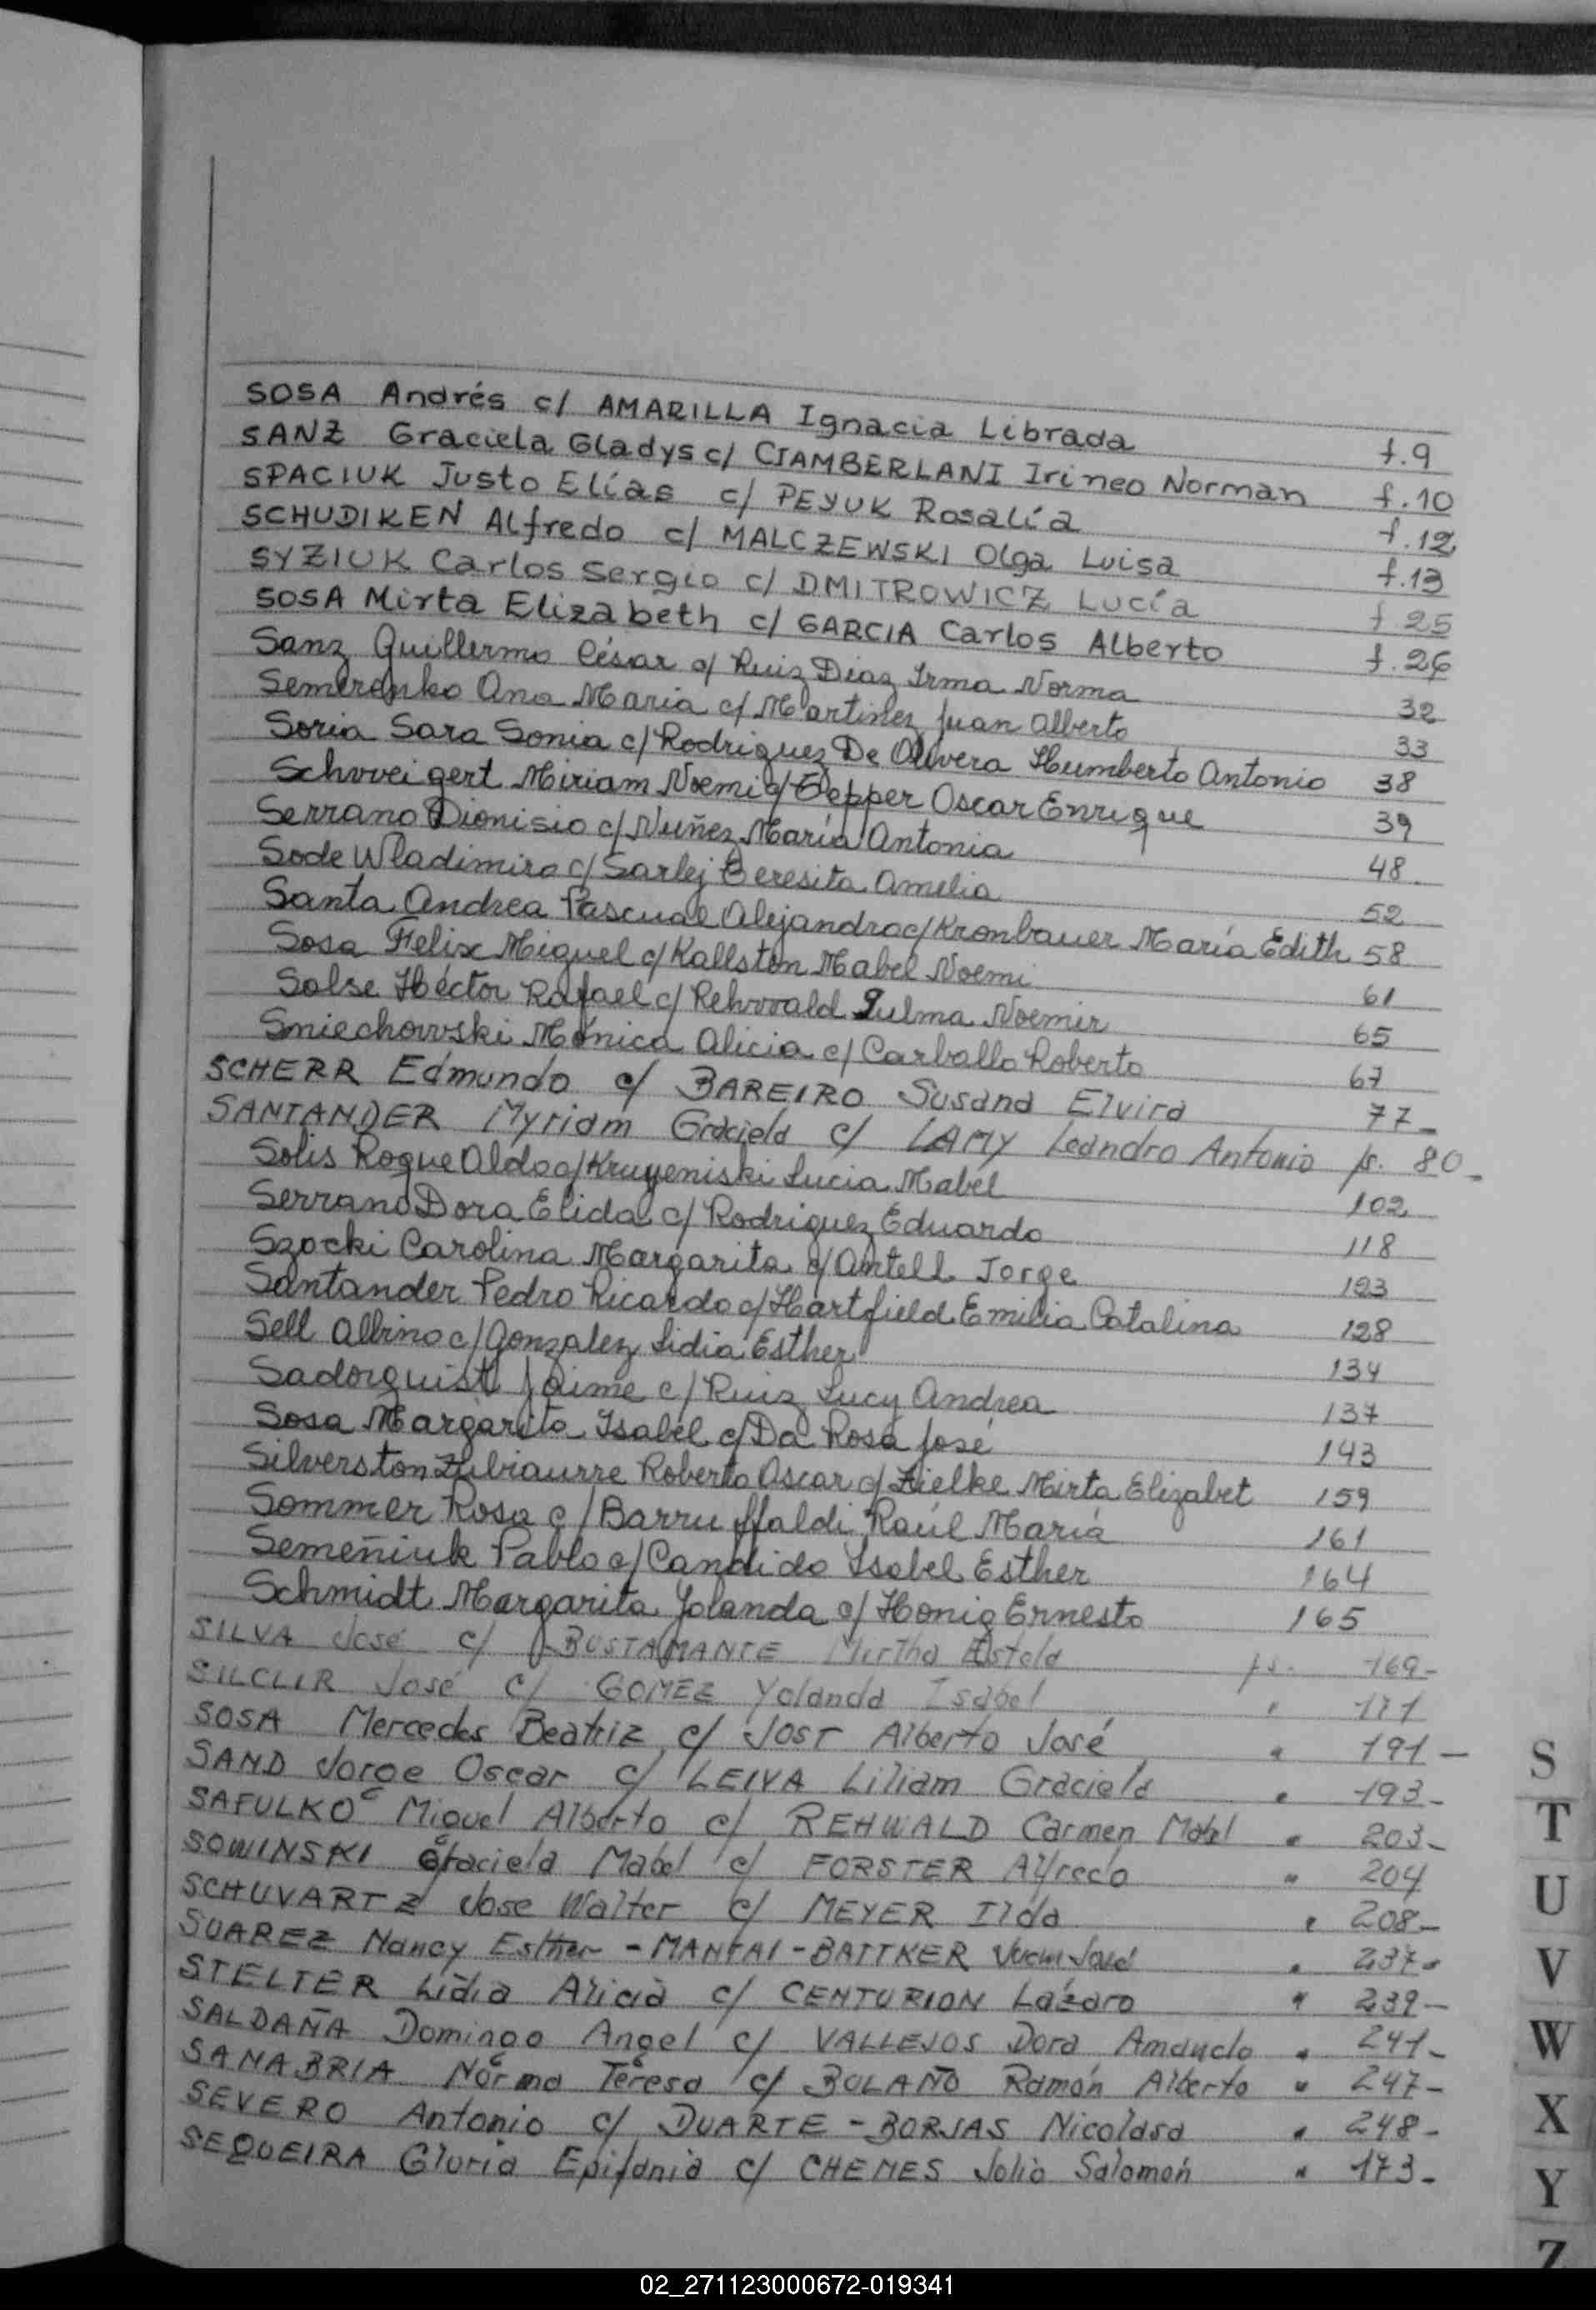 SOSA Andrés c/ AMARILLA Ignacia Librada f.9
SANZ Graciela Gladys c/ CIAMBERLANI Irineo Norman f.10
SPACIUK Justo Elías c/ PEYUK Rosalía f.12
SCHUDIKEN Alfredo c/ MALCZEWSKI Olga Luisa f.13
SYZIUK Carlos Sergio c/ DMITROWICZ Lucía f.25
SOSA Mirta Elizabeth c/ GARCIA Carlos Alberto f.26
Sanz Guillermo César c/ Ruiz Diaz Irma Norma 32
Semerenko Ana Maria c/ Martinez Juan Alberto 33
Soria Sara Sonia c/ Rodriguez De Olivera Humberto Antonio 38
Schweigert Miriam Noemi c/ Tepper Oscar Enrique 39
Serrano Dionisio c/ Nuñez María Antonia 48
Sode Wladimiro c/ Sarlej Teresita Amelia 52
Santa Andrea Pascual Alejandro c/ Kronbauer María Edith 58
Sosa Felix Miguel c/ Kallsten Mabel Noemi 61
Solse Héctor Rafael c/ Rehwald Zulma Noemir 65
Smiechowski Mónica Alicia c/ Carballo Roberto 67
SCHERR Edmundo c/ BAREIRO Susana Elvira 77-
SANTANDER Myriam Graciela c/ LAMY Leandro Antonio fs. 80-
Solis Roque Aldo c/ Kruyeniski Lucia Mabel 102
Serrano Dora Elida c/ Rodriguez Eduardo 118
Szocki Carolina Margarita c/ Antell Jorge 123
Santander Pedro Ricardo c/ Hartfield Emilia Catalina 128
Sell Albino c/ Gonzalez Lidia Esther 134
Sadorquist Jaime c/ Ruiz Lucy Andrea 137
Sosa Margarita Isabel c/ Da Rosa José 143
Silverston Zubiaurre Roberto Oscar c/ Zielke Mirta Elizabet 159
Sommer Rosa c/ Barruffaldi Raúl María 161
Semeñiuk Pablo c/ Candido Isabel Esther 164
Schmidt Margarita Yolanda c/ Honig Ernesto 165
SILVA José c/ BUSTAMANTE Mirtha Estela fs. 169-
SILCLIR José c/ GOMEZ Yolanda Isabel " 171
SOSA Mercedes Beatriz c/ JOST Alberto José " 191-
SAND Jorge Oscar c/ LEIVA Liliam Graciela " 193-
SAFULKO Miguel Alberto c/ REHWALD Carmen Mabel " 203-
SOWINSKI Graciela Mabel c/ FORSTER Alfredo " 204
SCHUVARTZ Jose Walter c/ MEYER Ilda " 208-
SUAREZ Nancy Esther - MANFAI - BATTKER José " 237-
STELTER Lidia Alicia c/ CENTURION Lázaro " 239-
SALDAÑA Domingo Angel c/ VALLEJOS Dora Amancla " 241-
SANABRIA Norma Teresa c/ BOLAÑO Ramón Alberto " 247-
SEVERO Antonio c/ DUARTE - BORJAS Nicolasa " 248-
SEQUEIRA Gloria Epifania c/ CHEMES Julio Salomón " 173-
S
T
U
V
W
X
Y
Z
02_271123000672-019341